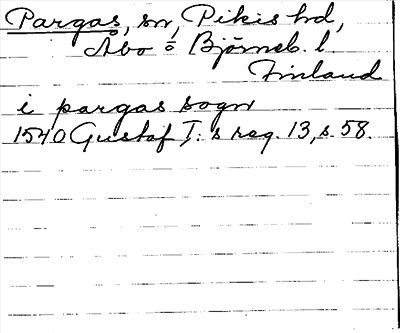 Pargas, sn, Pikis hd,
Åbo o Björneb. l.
Finland
i pargas sogn
1540 Gustaf I:s reg. 13, s. 58.